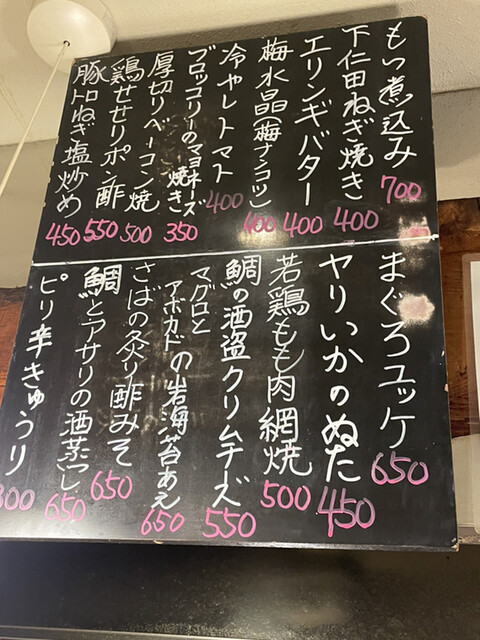 もつ煮込み 700
下仁田ねぎ焼き 400
エリンギバター 400
梅水晶(梅ナンコツ) 400
冷やしトマト 400
ブロッコリーのマヨネーズ焼き 350
厚切りベーコン焼 500
鶏せせりポン酢 550
豚トロねぎ塩炒め 450
まぐろユッケ 650
ヤリいかのぬた 450
若鶏もも肉網焼 500
鯛の酒盗クリームチーズ 550
マグロと
アボカドの岩海苔あえ 650
さばの炙り酢みそ 650
鯛とアサリの酒蒸し 650
ピリ辛きゅうり 300